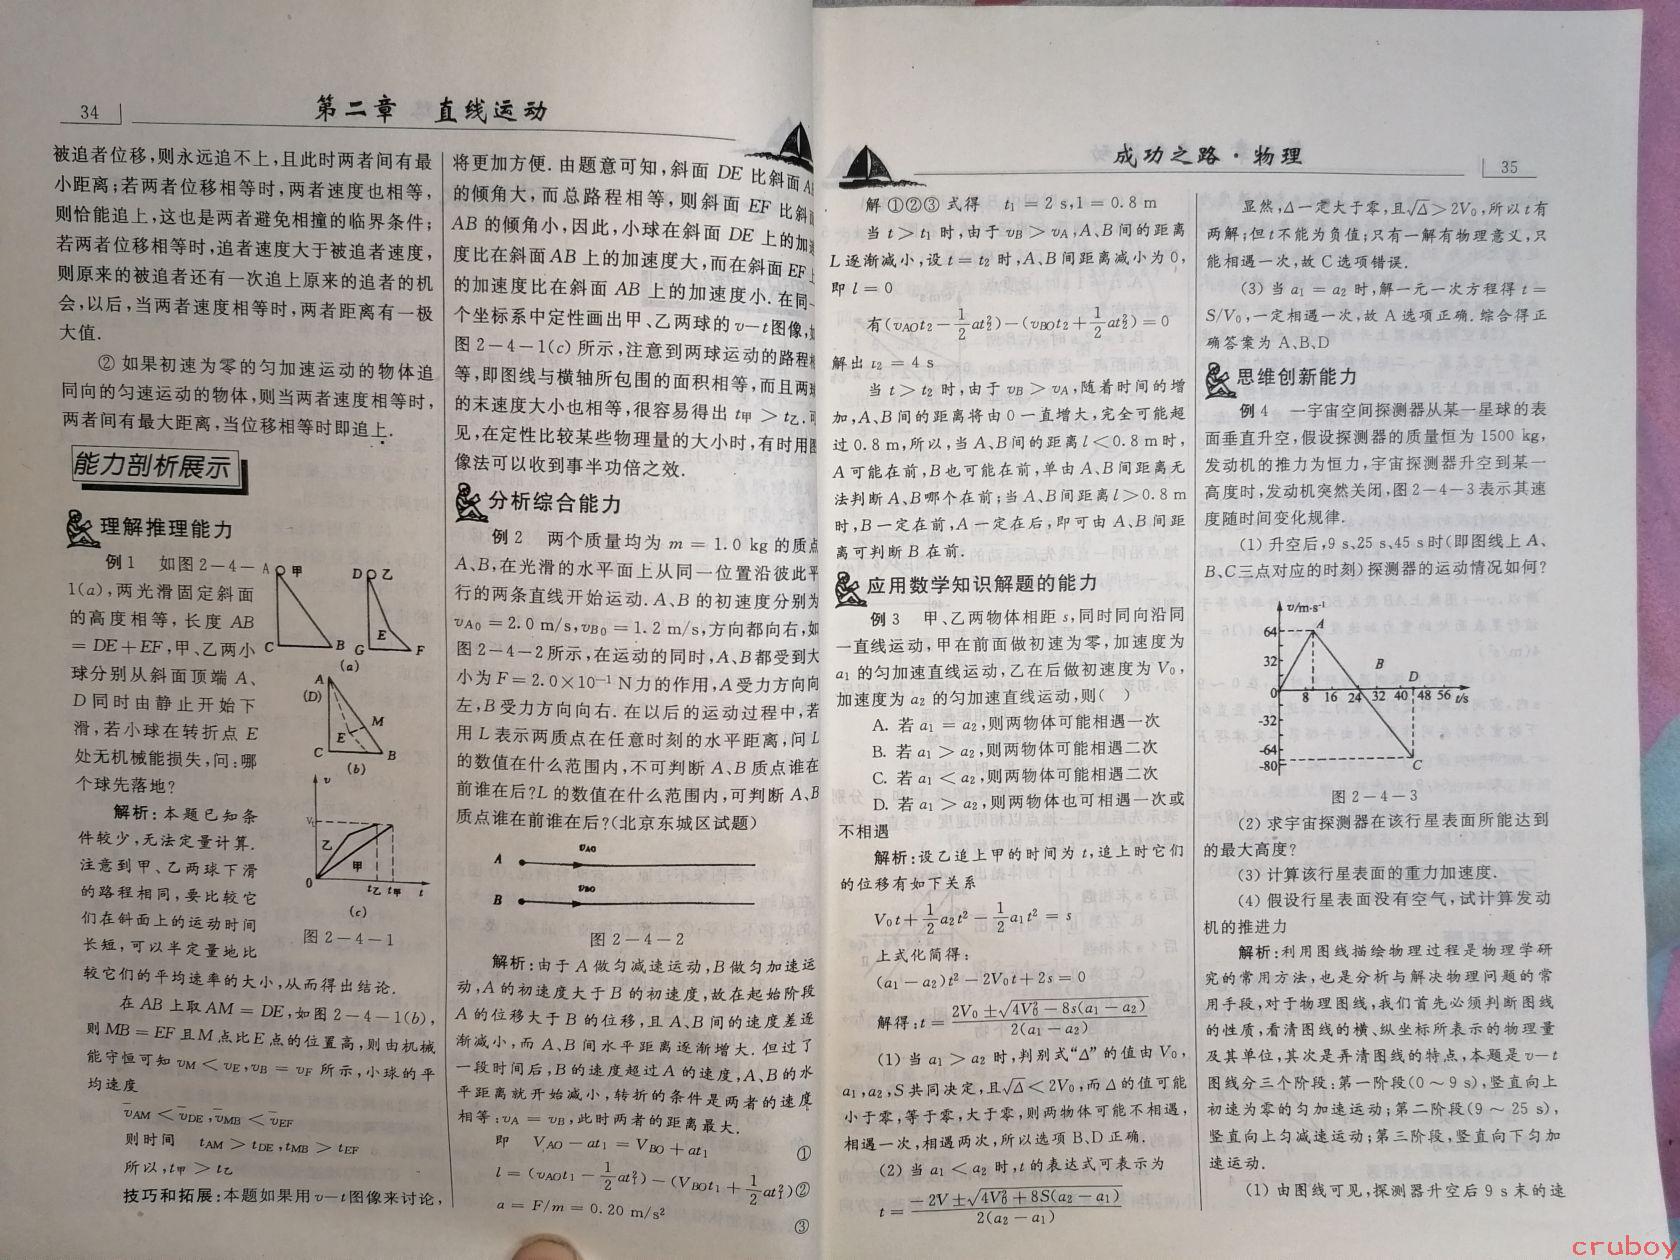 34
第二章 直线运动
被追者位移,则永远追不上,且此时两者间有最
小距离;若两者位移相等时,两者速度也相等,
则恰能追上,这也是两者避免相撞的临界条件;
若两者位移相等时,追者速度大于被追者速度,
则原来的被追者还有一次追上原来的追者的机
会,以后,当两者速度相等时,两者距离有一极
大值.
② 如果初速为零的匀加速运动的物体追
同向的匀速运动的物体,则当两者速度相等时,
两者间有最大距离,当位移相等时即追上.
能力剖析展示
理解推理能力
例1 如图2-4-
1(a),两光滑固定斜面
的高度相等,长度 AB
= DE+EF,甲、乙两小
球分别从斜面顶端 A、
D 同时由静止开始下
滑,若小球在转折点 E
处无机械能损失,问:哪
个球先落地?
A 甲 D 乙
C B G E F
(a)
A
(D)
M
E
C B
(b)
v
Vt
乙
甲
0 t乙 t甲 t
(c)
图2-4-1
解析:本题已知条
件较少,无法定量计算.
注意到甲、乙两球下滑
的路程相同,要比较它
们在斜面上的运动时间
长短,可以半定量地比
较它们的平均速率的大小,从而得出结论.
在 AB 上取AM = DE,如图2-4-1(b),
则 MB = EF 且 M 点比 E 点的位置高,则由机械
能守恒可知 vM < vE,vB = vF 所示,小球的平
均速度
v̄AM < v̄DE,v̄MB < v̄EF
则时间 tAM > tDE,tMB > tEF
所以,t甲 > t乙
技巧和拓展:本题如果用 v-t图像来讨论,
将更加方便.由题意可知,斜面 DE 比斜面
的倾角大,而总路程相等,则斜面 EF 比斜
AB 的倾角小,因此,小球在斜面 DE 上的加
度比在斜面 AB 上的加速度大,而在斜面 EF
的加速度比在斜面 AB 上的加速度小.在同
个坐标系中定性画出甲、乙两球的 v-t图像,
图2-4-1(c) 所示,注意到两球运动的路程
等,即图线与横轴所包围的面积相等,而且两
的末速度大小也相等,很容易得出 t甲 > t乙.
见,在定性比较某些物理量的大小时,有时用图
像法可以收到事半功倍之效.
分析综合能力
例2 两个质量均为 m = 1.0 kg 的质点
A、B,在光滑的水平面上从同一位置沿彼此平
行的两条直线开始运动.A、B 的初速度分别为
vA0 = 2.0 m/s,vB0 = 1.2 m/s,方向都向右,如
图2-4-2所示,在运动的同时,A、B都受到大
小为 F = 2.0×10⁻¹ N力的作用,A受力方向向
左,B受力方向向右.在以后的运动过程中,若
用 L 表示两质点在任意时刻的水平距离,问 L
的数值在什么范围内,不可判断 A、B 质点谁在
前谁在后?L 的数值在什么范围内,可判断 A、B
质点谁在前谁在后?(北京东城区试题)
A vA0
B vB0
图2-4-2
解析:由于 A 做匀减速运动,B做匀加速运
动,A 的初速度大于 B 的初速度,故在起始阶段
A 的位移大于 B 的位移,且 A、B 间的速度差逐
渐减小,而 A、B 间水平距离逐渐增大.但过了
一段时间后,B的速度超过 A 的速度,A、B的水
平距离就开始减小,转折的条件是两者的速度
相等:vA = vB,此时两者的距离最大.
即 VA0 - at1 = VB0 + at1 ①
l = (vA0t1 - 1/2 at1²) - (VB0t1 + 1/2 at1²) ②
a = F/m = 0.20 m/s² ③
成功之路·物理
35
解 ①②③ 式得 t1 = 2 s,1 = 0.8 m
当 t > t1 时,由于 vB > vA,A、B 间的距离
L 逐渐减小,设 t = t2 时,A、B间距离减小为 0,
即 l = 0
有(vA0t2 - 1/2 at2²) - (vB0t2 + 1/2 at2²) = 0
解出 t2 = 4 s
当 t > t2 时,由于 vB > vA,随着时间的增
加,A、B 间的距离将由 0 一直增大,完全可能超
过 0.8 m,所以,当 A、B间的距离 l < 0.8 m 时,
A 可能在前,B也可能在前,单由 A、B间距离无
法判断 A、B哪个在前;当 A、B间距离 l > 0.8 m
时,B 一定在前,A 一定在后,即可由 A、B 间距
离可判断 B 在前.
应用数学知识解题的能力
例3 甲、乙两物体相距 s,同时同向沿同
一直线运动,甲在前面做初速为零,加速度为
a1 的匀加速直线运动,乙在后做初速度为 V0,
加速度为 a2 的匀加速直线运动,则( )
A. 若 a1 = a2,则两物体可能相遇一次
B. 若 a1 > a2,则两物体可能相遇二次
C. 若 a1 < a2,则两物体可能相遇二次
D. 若 a1 > a2,则两物体也可相遇一次或
不相遇
解析:设乙追上甲的时间为 t,追上时它们
的位移有如下关系
V0t + 1/2 a2t² - 1/2 a1t² = s
上式化简得:
(a1 - a2)t² - 2V0t + 2s = 0
解得:t = (2V0 ± √(4V0² - 8s(a1 - a2))) / 2(a1 - a2)
(1) 当 a1 > a2 时,判别式“Δ”的值由 V0,
a1,a2,S共同决定,且√Δ < 2V0,而 Δ 的值可能
小于零,等于零,大于零,则两物体可能不相遇,
相遇一次,相遇两次,所以选项 B、D 正确.
(2) 当 a1 < a2 时,t 的表达式可表示为
t = (-2V ± √(4V0² + 8S(a2 - a1))) / 2(a2 - a1)
显然,Δ一定大于零,且√Δ > 2V0,所以 t 有
两解;但 t 不能为负值;只有一解有物理意义,只
能相遇一次,故 C 选项错误.
(3) 当 a1 = a2 时,解一元一次方程得 t =
S/V0,一定相遇一次,故 A 选项正确.综合得正
确答案为 A、B、D
思维创新能力
例4 一宇宙空间探测器从某一星球的表
面垂直升空,假设探测器的质量恒为 1500 kg,
发动机的推力为恒力,宇宙探测器升空到某一
高度时,发动机突然关闭,图2-4-3表示其速
度随时间变化规律.
(1) 升空后,9 s、25 s、45 s 时(即图线上 A、
B、C三点对应的时刻)探测器的运动情况如何?
v/m·s⁻¹
64
32
0
-32
-64
-80
A
B
D
C
8 16 24 32 40 48 56
t/s
图2-4-3
(2) 求宇宙探测器在该行星表面所能达到
的最大高度?
(3) 计算该行星表面的重力加速度.
(4) 假设行星表面没有空气,试计算发动
机的推进力
解析:利用图线描绘物理过程是物理学研
究的常用方法,也是分析与解决物理问题的常
用手段,对于物理图线,我们首先必须判断图线
的性质,看清图线的横、纵坐标所表示的物理量
及其单位,其次是弄清图线的特点,本题是 v-t
图线分三个阶段:第一阶段(0 ~ 9 s),竖直向上
初速为零的匀加速运动;第二阶段(9 ~ 25 s),
竖直向上匀减速运动;第三阶段,竖直向下匀加
速运动.
(1) 由图线可见,探测器升空后 9 s 末的速
cruboy